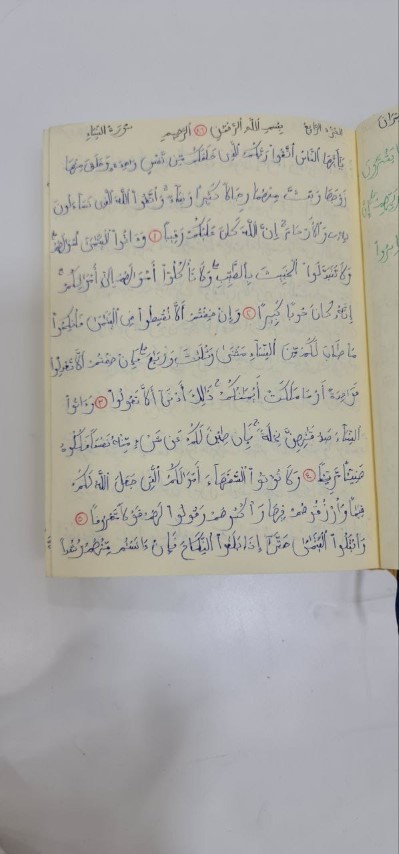 الجزء الرابع بسم الله الرحمن الرحيم سورة النساء
يَٰٓأَيُّهَا ٱلنَّاسُ ٱتَّقُوا۟ رَبَّكُمُ ٱلَّذِى خَلَقَكُم مِّن نَّفْسٍ وَٰحِدَةٍ وَخَلَقَ مِنْهَا
زَوْجَهَا وَبَثَّ مِنْهُمَا رِجَالًا كَثِيرًا وَنِسَآءً وَٱتَّقُوا۟ ٱللَّهَ ٱلَّذِى تَسَآءَلُونَ
بِهِۦ وَٱلْأَرْحَامَ إِنَّ ٱللَّهَ كَانَ عَلَيْكُمْ رَقِيبًا ١ وَءَاتُوا۟ ٱلْيَتَٰمَىٰٓ أَمْوَٰلَهُمْ
وَلَا تَتَبَدَّلُوا۟ ٱلْخَبِيثَ بِٱلطَّيِّبِ وَلَا تَأْكُلُوٓا۟ أَمْوَٰلَهُمْ إِلَىٰٓ أَمْوَٰلِكُمْ
إِنَّهُۥ كَانَ حُوبًا كَبِيرًا ٢ وَإِنْ خِفْتُمْ أَلَّا تُقْسِطُوا۟ فِى ٱلْيَتَٰمَىٰ فَٱنكِحُوا۟
مَا طَابَ لَكُم مِّنَ ٱلنِّسَآءِ مَثْنَىٰ وَثُلَٰثَ وَرُبَٰعَ فَإِنْ خِفْتُمْ أَلَّا تَعْدِلُوا۟
فَوَٰحِدَةً أَوْ مَا مَلَكَتْ أَيْمَٰنُكُمْ ذَٰلِكَ أَدْنَىٰٓ أَلَّا تَعُولُوا۟ ٣ وَءَاتُوا۟
ٱلنِّسَآءَ صَدُقَٰتِهِنَّ نِحْلَةً فَإِن طِبْنَ لَكُمْ عَن شَىْءٍ مِّنْهُ نَفْسًا فَكُلُوهُ
هَنِيٓـًٔا مَّرِيٓـًٔا ٤ وَلَا تُؤْتُوا۟ ٱلسُّفَهَآءَ أَمْوَٰلَكُمُ ٱلَّتِى جَعَلَ ٱللَّهُ لَكُمْ
قِيَٰمًا وَٱرْزُقُوهُمْ فِيهَا وَٱكْسُوهُمْ وَقُولُوا۟ لَهُمْ قَوْلًا مَّعْرُوفًا ٥
وَٱبْتَلُوا۟ ٱلْيَتَٰمَىٰ حَتَّىٰٓ إِذَا بَلَغُوا۟ ٱلنِّكَاحَ فَإِنْ ءَانَسْتُم مِّنْهُمْ رُشْدًا